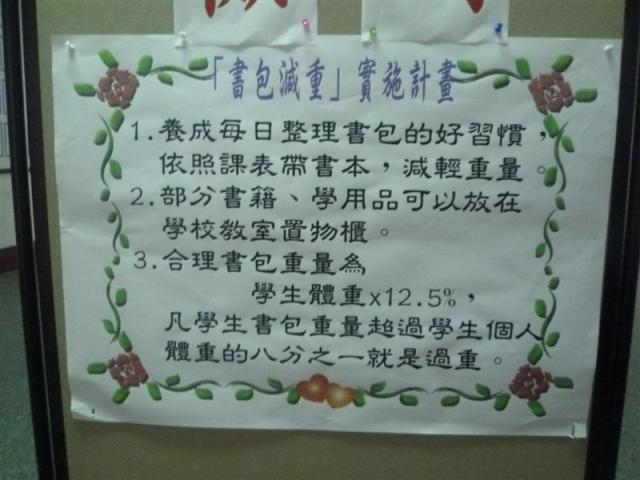 「書包減重」實施計畫
1.養成每日整理書包的好習慣，
依照課表帶書本，減輕重量。
2.部分書籍、學用品可以放在
學校教室置物櫃。
3.合理書包重量為
學生體重x12.5%，
凡學生書包重量超過學生個人
體重的八分之一就是過重。